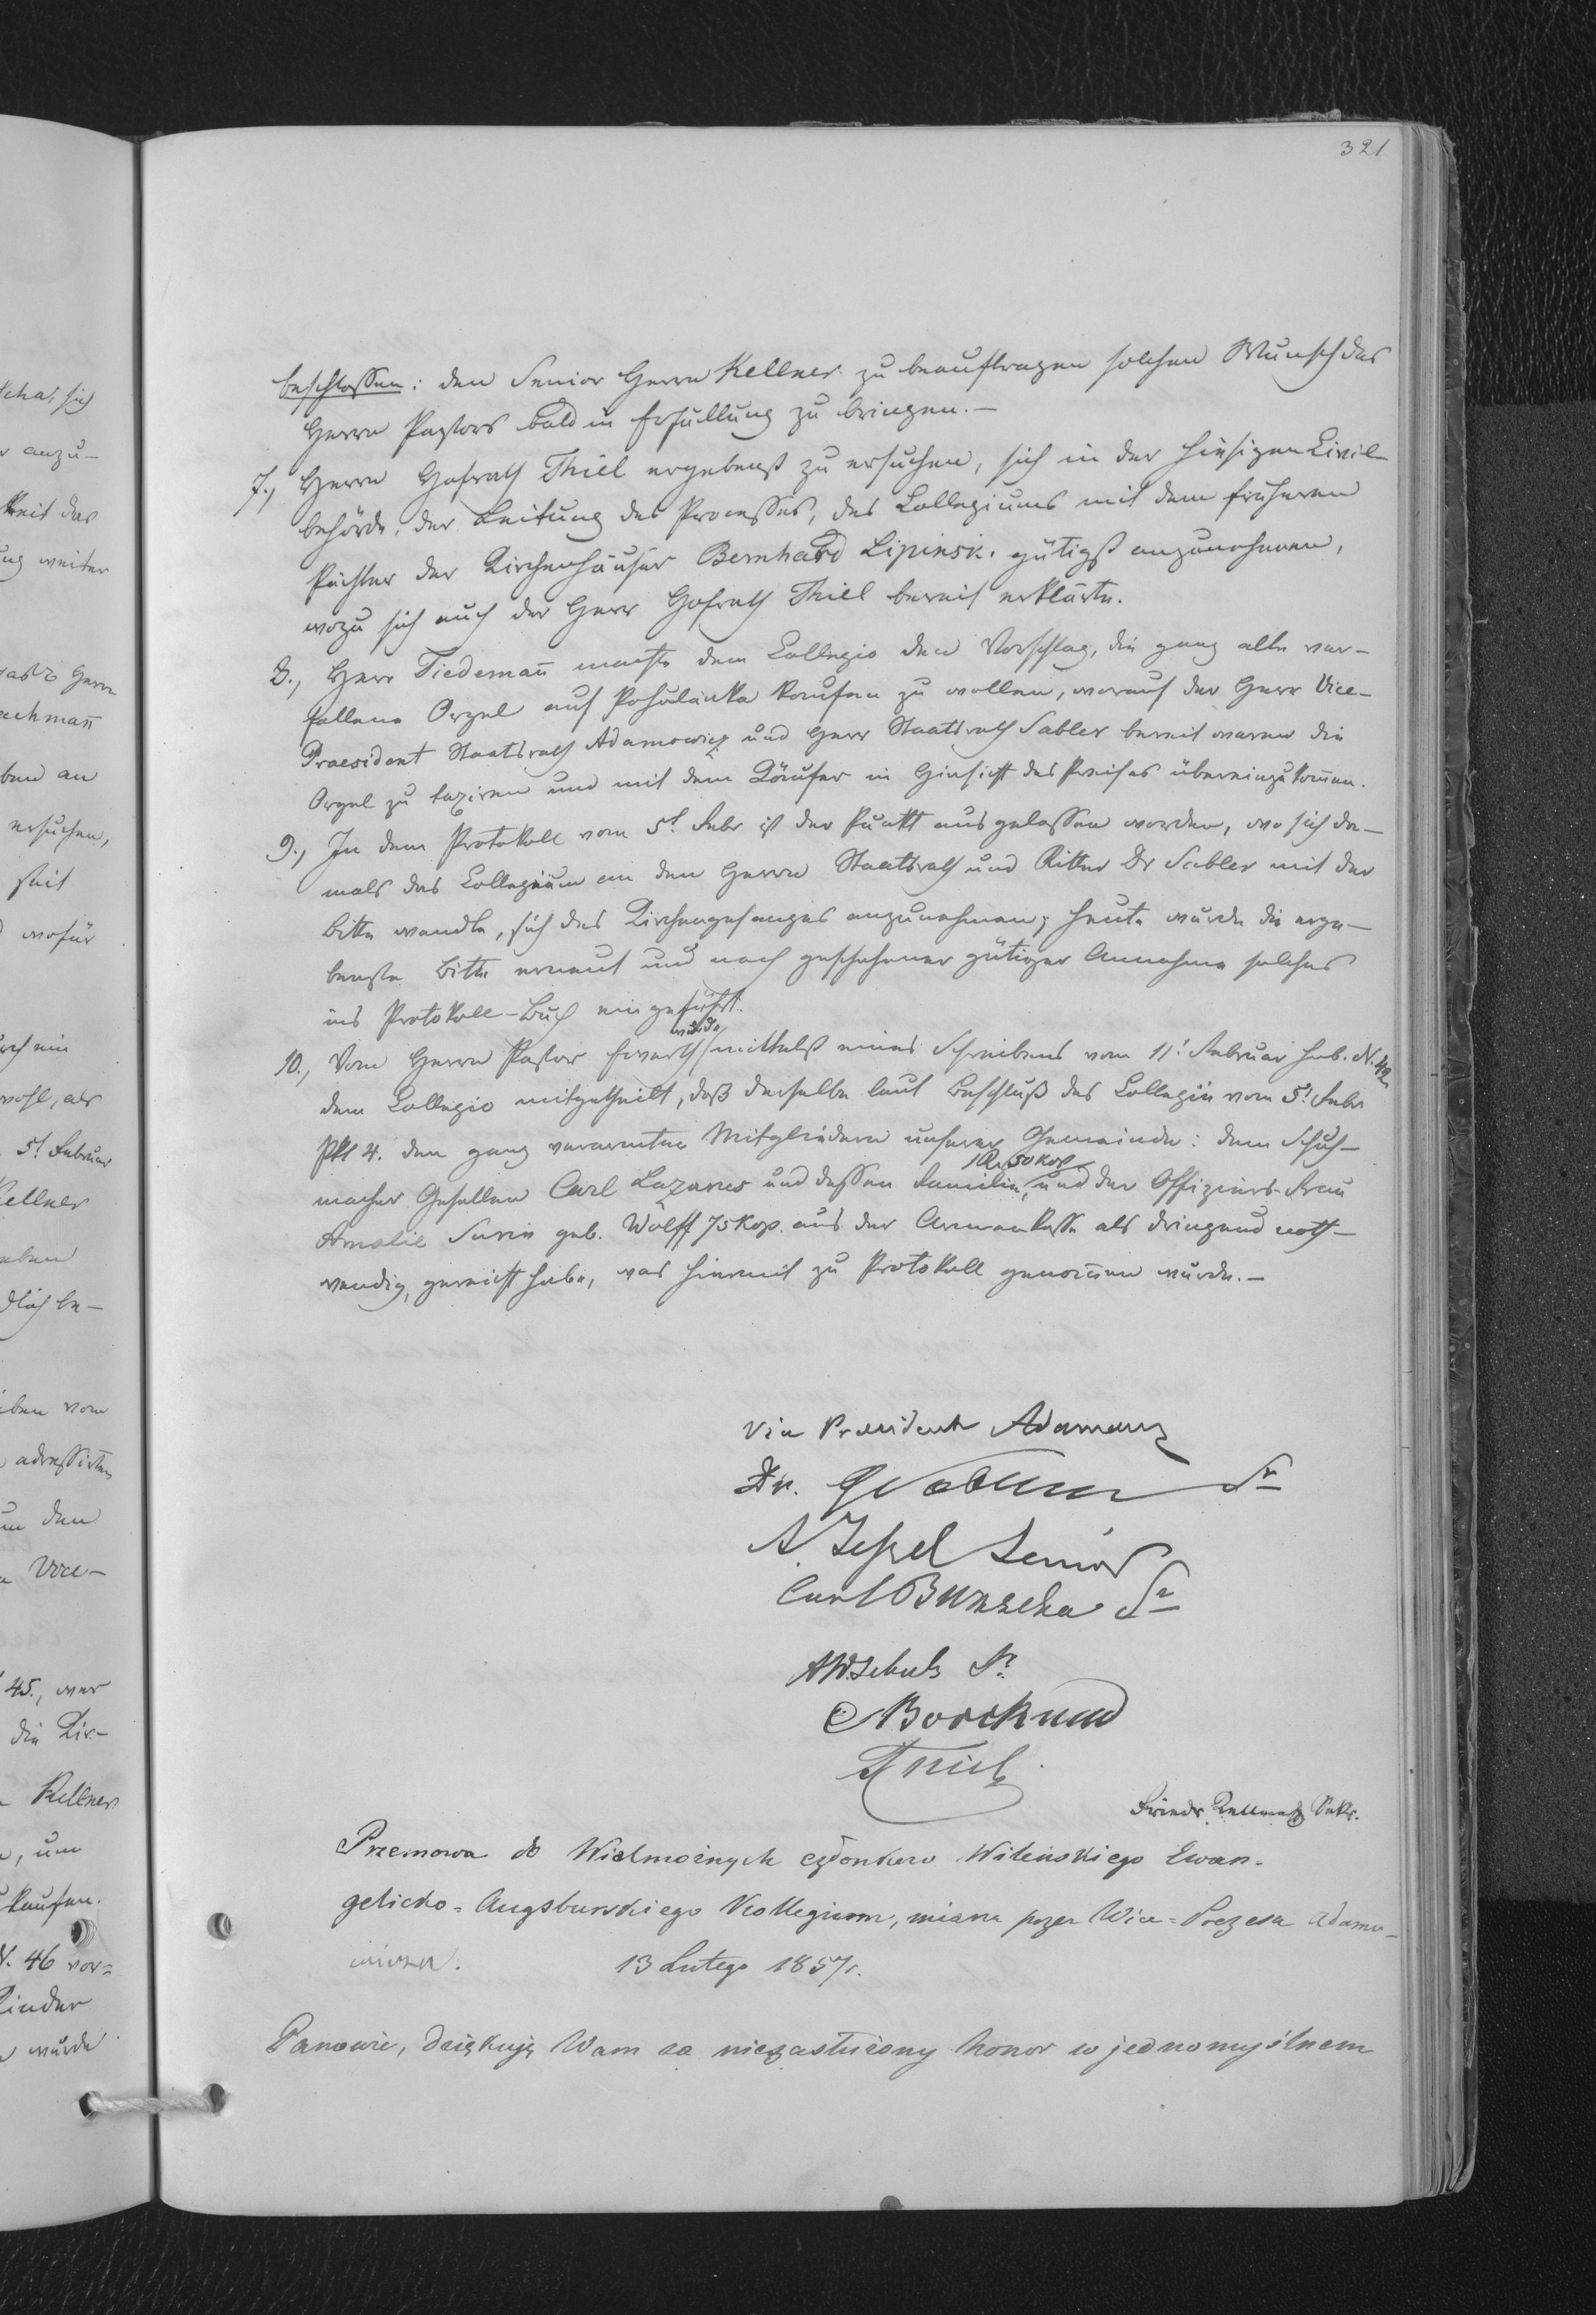 321
beschlossen: den Senior Herrn Kellner zu beauftragen solchen Wunsch des
Herrn Pastors bald in Erfüllung zu bringen.—
7., Herrn Hofrath Thiel ergebenst zu ersuchen, sich in der hiesigen Civil-
behörde, der Leitung des Processes, des Collegiums mit dem früheren
Pächter der Kirchenhäuser Bernhard Lipinski gütigst anzunehmen,
wozu sich auch der Herr Hofrath Thiel bereit erklärte.
8., Herr Tiedemañ machte dem Collegio den Vorschlag, die ganz alte ver-
fallene Orgel auf Pohulanka kaufen zu wollen, worauf der Herr Vice-
Praesident Staatsrath Adamowicz und Herr Staatsrath Sabler bereit waren die
Orgel zu taxiren und mit dem Käufer in Hinsicht des Preises übereinzukom̄en.
9., In dem Protokoll vom 5t. Febr ist der Punkt ausgelassen worden, wo sich da-
mals das Collegium an den Herrn Staatsrath und Ritter Dr Sabler mit der
Bitte wandte, sich des Kirchengesanges anzunehmen; heute wurde die erge-
benste Bitte erneut und nach geschehener gütiger Annahme solches
ins Protokoll-Buch eingeführt.
wurde
10., Vom Herrn Pastor Everth mittelst eines Schreibens vom 11t. Februar sub. N. 42.
dem Collegio mitgetheilt, daß derselbe laut Beschluß des Collegii vom 5t. Febr
Pkt 4. den ganz verarmten Mitgliedern unserer Gemeinde: dem Schuh-
1 R. 50 Kop
macher Gesellen Carl Lazarus und dessen Familie, und der Offiziers-Frau
Amalie Surin geb. Wolff 75 Kop. aus der Armenkasse als dringend noth-
wendig, gereicht habe, was hiermit zu Protokoll genom̄en wurde.—
Vice Praesident Adamowicz
Dr. Sr
A. Senior
Carl Sr
A W. Schulz Sr.
Thiel
Friedr. Kellner Sekr.
Przemowa do Wielmożnych członków Wileńskiego Ewan-
gelicko-Augsburskiego Kollegium, miana przez Wice-Prezesa Adamo-
wicza. 13 Lutego 1857 r.
Panowie, dziękuję Wam za niezasłużony honor w jednomyślnem